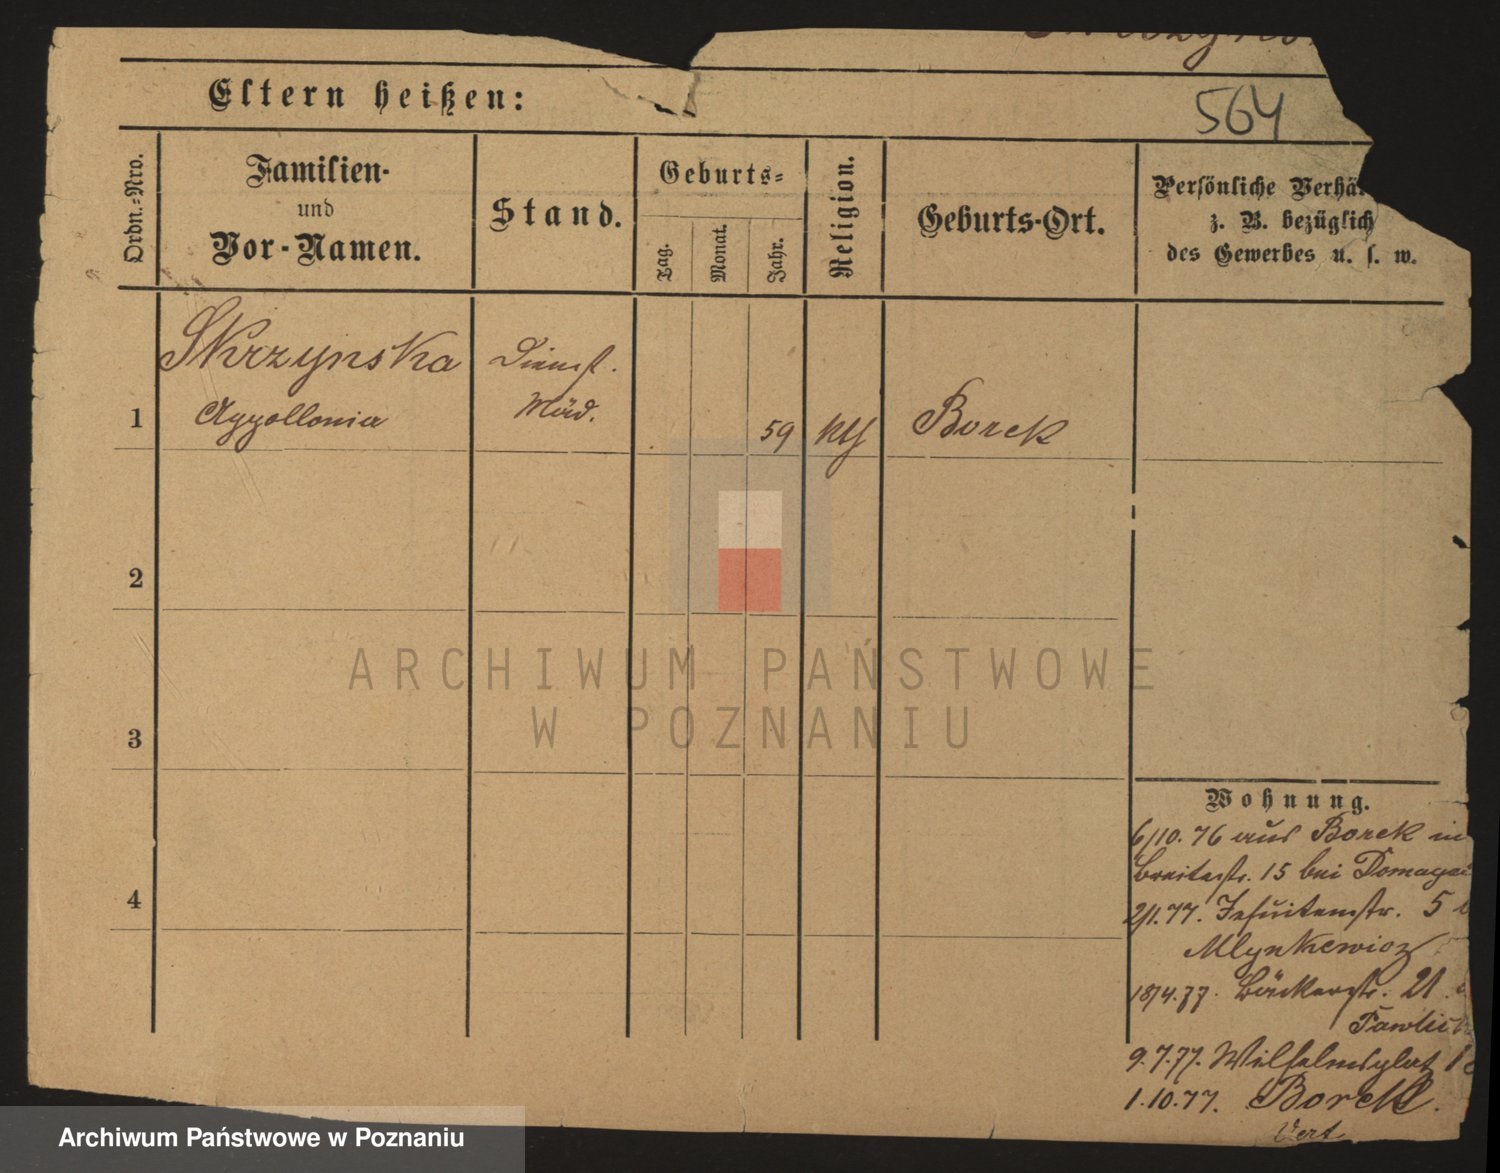 Eltern heißen:
564
Ordn.-Nro.
Familien-
und
Vor-Namen.
Stand.
Geburts-
Tag.
Monat.
Jahr.
Religion.
Geburts-Ort.
Persönliche Verhä
z. B. bezüglich
des Gewerbes u. s. w.
Skrzynska
Dienst.
1
Appollonia
Mäd.
59
kth
Borek
2
3
4
ARCHIWUM PAŃSTWOWE
W POZNANIU
Wohnung.
6/10. 76 aus Borek in
Breitestr. 15 bei Domagal
2/1. 77. Jesuitenstr. 5
Mlynkewicz
18/4. 77. Bäckerstr. 21.
Pawlic
9. 7. 77. Wilhelmsplat
1. 10. 77. Borek.
Archiwum Państwowe w Poznaniu